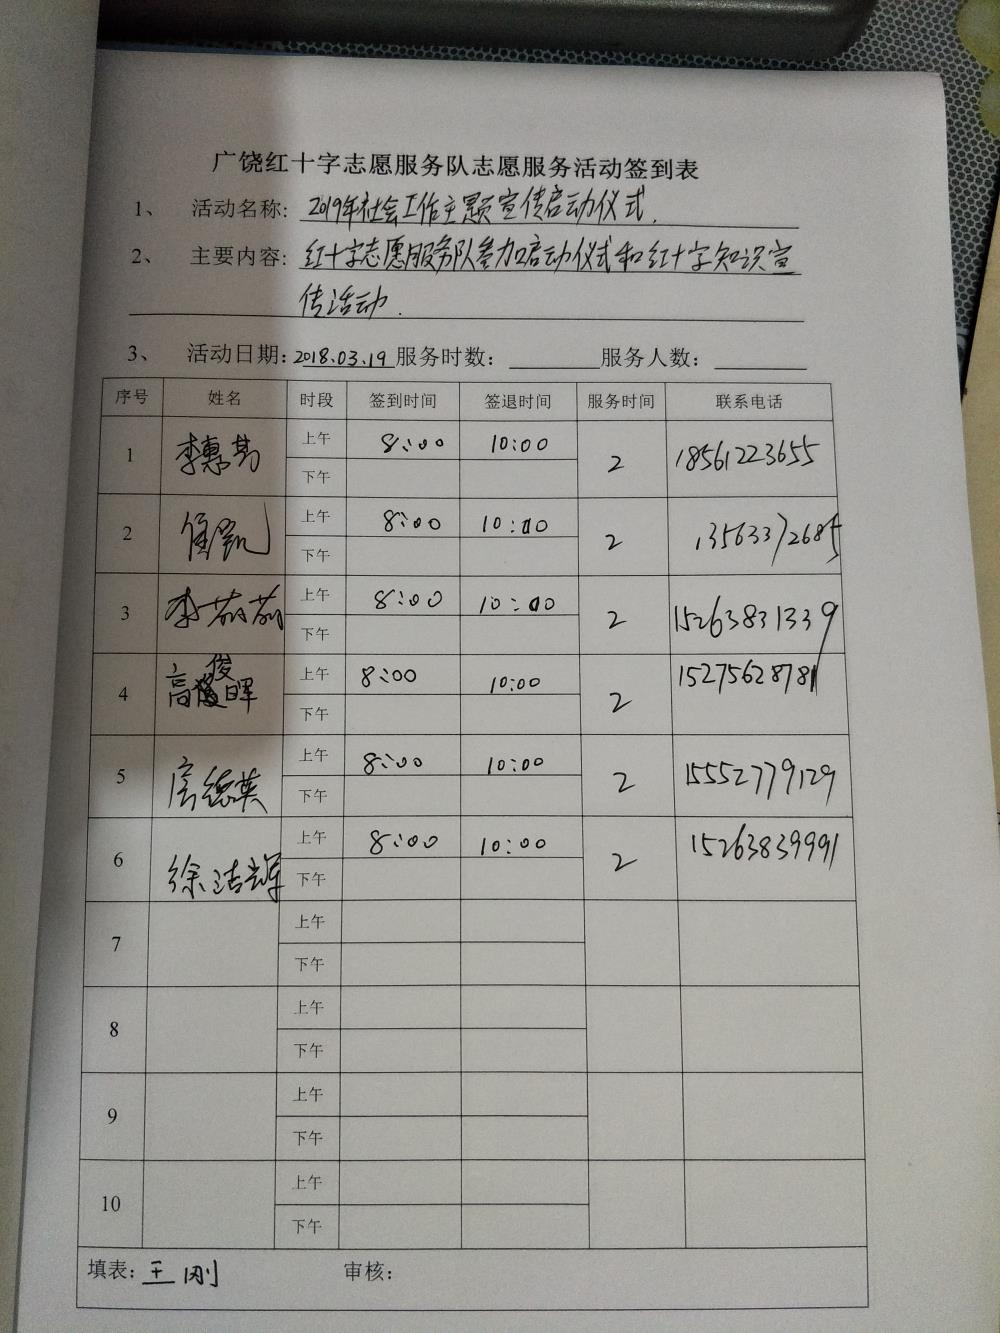 广饶红十字志愿服务队志愿服务活动签到表
1、 活动名称: 2019年社会工作主题宣传启动仪式.
2、 主要内容: 红十字志愿服务队参加启动仪式和红十字知识宣
传活动.
3、 活动日期: 2018.03.19 服务时数: 服务人数:
序号 姓名 时段 签到时间 签退时间 服务时间 联系电话
1 李惠 上午 8:00 10:00 2 18561223655
下午
2 上午 8:00 10:00 2 13563372685
下午
3 李莉莉 上午 8:00 10:00 2 15263831339
下午
4 高俊晖 上午 8:00 10:00 2 15275628781
下午
5 德英 上午 8:00 10:00 2 15552779129
下午
6 徐洁 上午 8:00 10:00 2 15263839991
下午
7 上午
下午
8 上午
下午
9 上午
下午
10 上午
下午
填表: 王刚 审核: